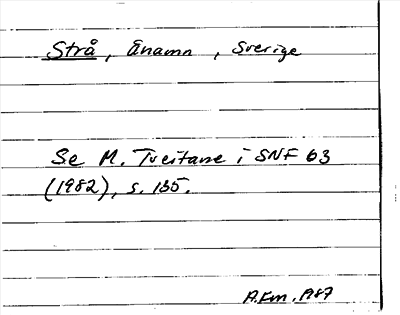 Strå, ånamn, Sverige
Se M. Tveitane i SNF 63
(1982), s. 135.
A.Em. 1987